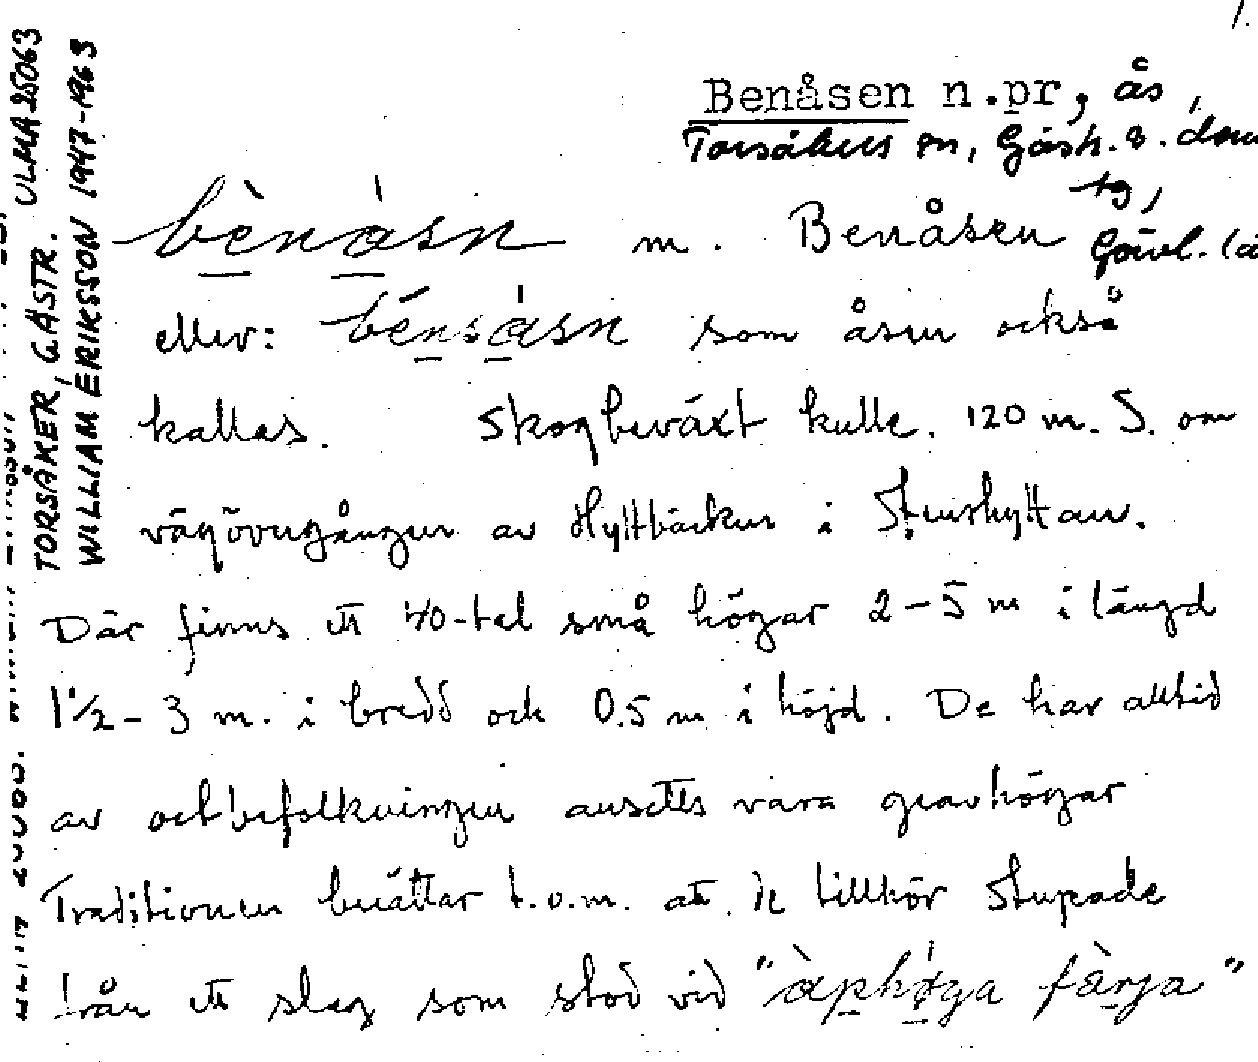 1.
Benåsen n.pr, ås,
Torsåkers sn, Gästr. ö. doms
tg,
bènåsn m. Benåsen Gävl. lä
eller: bénsåsn som åsen också
kallas. Skogbeväxt kulle. 120 m. S. om
vägövergången av Hyttbäcken i Stenshyttan.
Där finns ett 40-tal små högar 2-5 m i längd
1½-3 m. i bredd och 0.5 m i höjd. De har alltid
av ortbefolkningen ansetts vara gravhögar
Traditionen berättar t.o.m. att de tillhör stupade
från ett slag som stod vid "àphǿga fàrja"
TORSÅKER, GÄSTR. ULMA 25063
WILLIAM ERIKSSON 1947-1963